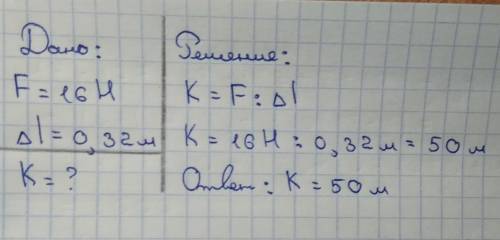 Дано:
F = 16 Н
Δl = 0,32 м
K = ?
Решение:
K = F : Δl
K = 16 Н : 0,32 м = 50 м
Ответ: K = 50 м